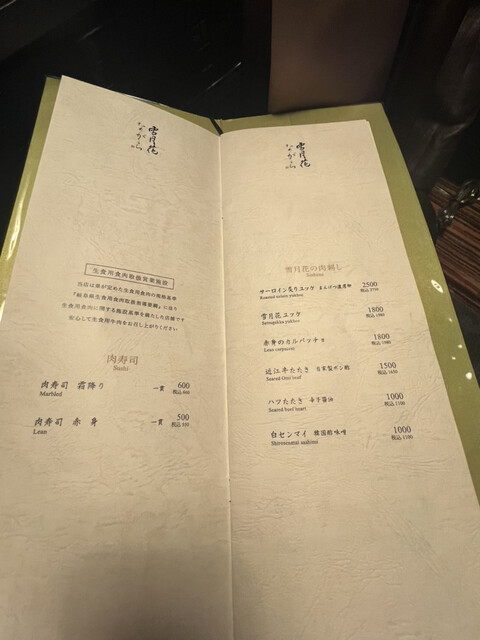 雪月花
ながら
生食用食肉取扱営業施設
当店は県が定めた生食用食肉の規格基準
安心して生食用牛肉をお召し上がりください
肉寿司
Sushi
肉寿司 霜降り 一貫 600
Marbled 税込 660
肉寿司 赤身 一貫 500
Lean 税込 550
雪月花
ながら
雪月花の肉刺し
Sashimi
サーロイン炙りユッケ 2500
Roasted sirloin yukhoe 税込 2750
雪月花ユッケ 1800
Setsugekka yukhoe 税込 1980
赤身のカルパッチョ 1800
Lean carpaccio 税込 1980
近江牛たたき 自家製ポン酢 1500
Seared Omi beef 税込 1650
ハツたたき 辛子醤油 1000
Seared beef heart 税込 1100
白センマイ 韓国酢味噌 1000
Shirosenmai sashimi 税込 1100